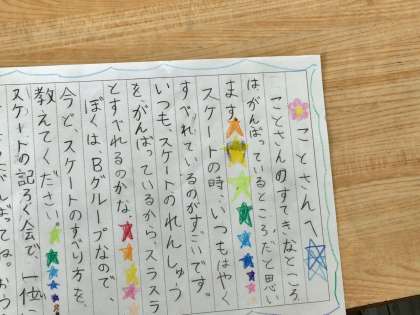 ことさんへ
ことさんのすてきなところ
はがんばっているところだと思い
ます。
スケートの時、いつもはやく
すべれているのがすごいです。
いつも、スケートのれんしゅう
を、がんばっているから、スラスラ
とすべれるのかな。
ぼくは、Bグループなので、
今ど、スケートのすべり方を、
教えてください。
スケートの記ろく会で、一位に